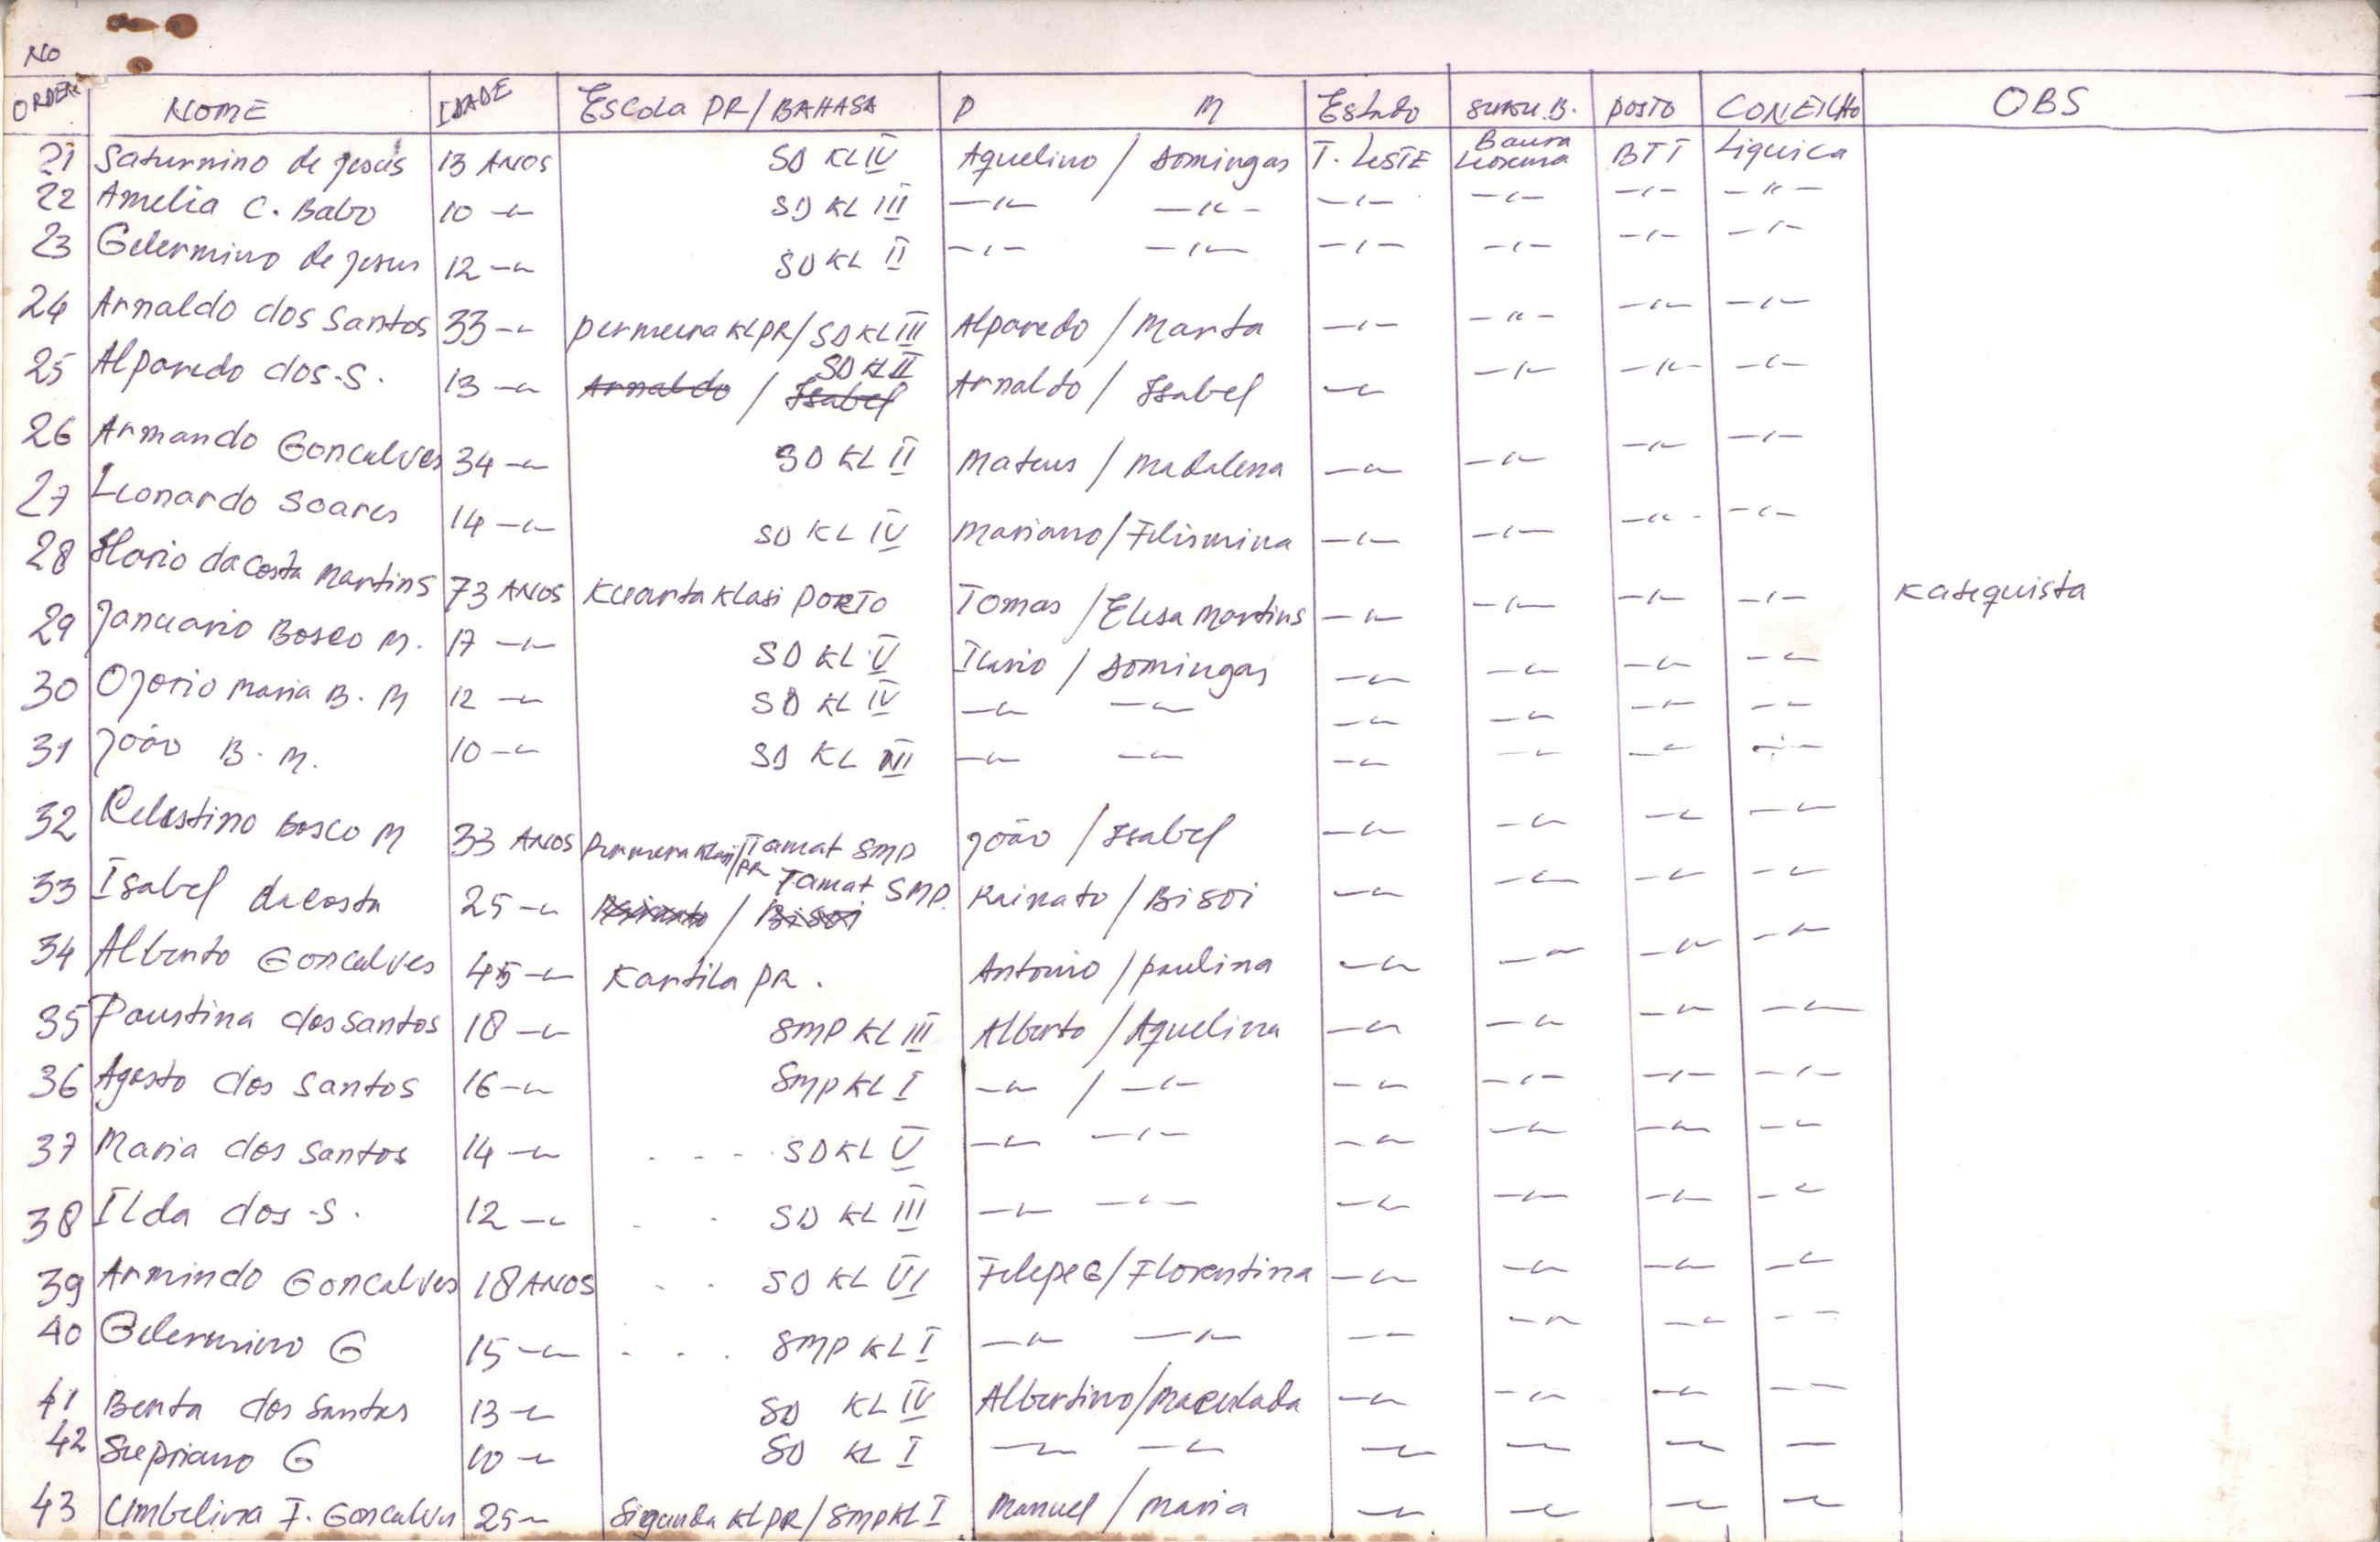 NO
ORDEM NOME IDADE Escola PR / BAHASA P M Estado SUKU. B. POSTO CONEILHO OBS
21 Saturnino de jesús 13 ANOS SD KL IV Aquelino / Domingas T. LESTE BTT Liquica
22 Amelia C. Babo 10 -"- SD KL III -"- -"- -"- -"- -"- -"-
23 Gelermino de jesus 12 -"- SD KL II -"- -"- -"- -"- -"- -"-
24 Arnaldo dos Santos 33 -"- permeira KL PR / SD KL III Alparedo / Marta -"- -"- -"- -"-
25 Alparedo dos.S. 13 -"- Arnaldo / Isabel SD KL II Arnaldo / Isabel -"- -"- -"- -"-
26 Armando Goncalves 34 -"- SD KL II Mateus / Madalena -"- -"- -"- -"-
27 Leonardo Soares 14 -"- SD KL IV Mariano / Filismina -"- -"- -"- -"-
28 Ilario da Costa Martins 73 ANOS Kuarta Klasi PORTO Tomas / Elisa Martins -"- -"- -"- -"- Katequista
29 Januario Bosco M. 17 -"- SD KL V Ilario / Domingas -"- -"- -"- -"-
30 Ojorio Maria B. M 12 -"- SD KL IV -"- -"- -"- -"- -"- -"-
31 João B. M. 10 -"- SD KL III -"- -"- -"- -"- -"- -"-
32 Celestino Bosco M 33 ANOS Permera Klasi PR / Tamat SMP João / Isabel -"- -"- -"- -"-
33 Isabel da Costa 25 -"- Kainato / Bisoi Tamat SMP. Kainato / Bisoi -"- -"- -"- -"-
34 Alberto Goncalves 45 -"- Kartila PR. Antonio / paulina -"- -"- -"- -"-
35 Faustina dos Santos 18 -"- SMP KL III Alberto / Aquelina -"- -"- -"- -"-
36 Agosto dos Santos 16 -"- SMP KL I -"- / -"- -"- -"- -"- -"-
37 Maria dos Santos 14 -"- SD KL V -"- -"- -"- -"- -"- -"-
38 Ilda dos.S. 12 -"- SD KL III -"- -"- -"- -"- -"- -"-
39 Armindo Goncalves 18 ANOS SD KL VI Felepe G / Florentina -"- -"- -"- -"-
40 Gelermino G 15 -"- SMP KL I -"- -"- -"- -"- -"- -"-
41 Benta dos Santos 13 -"- SD KL IV Albertino / Maculada -"- -"- -"- -"-
42 Siepriano G 10 -"- SD KL I -"- -"- -"- -"- -"- -
43 Umbelina F. Goncalves 25 -"- Sigunda KL PR / SMP KL I Manuel / Maria -"- -"- -"- -"-